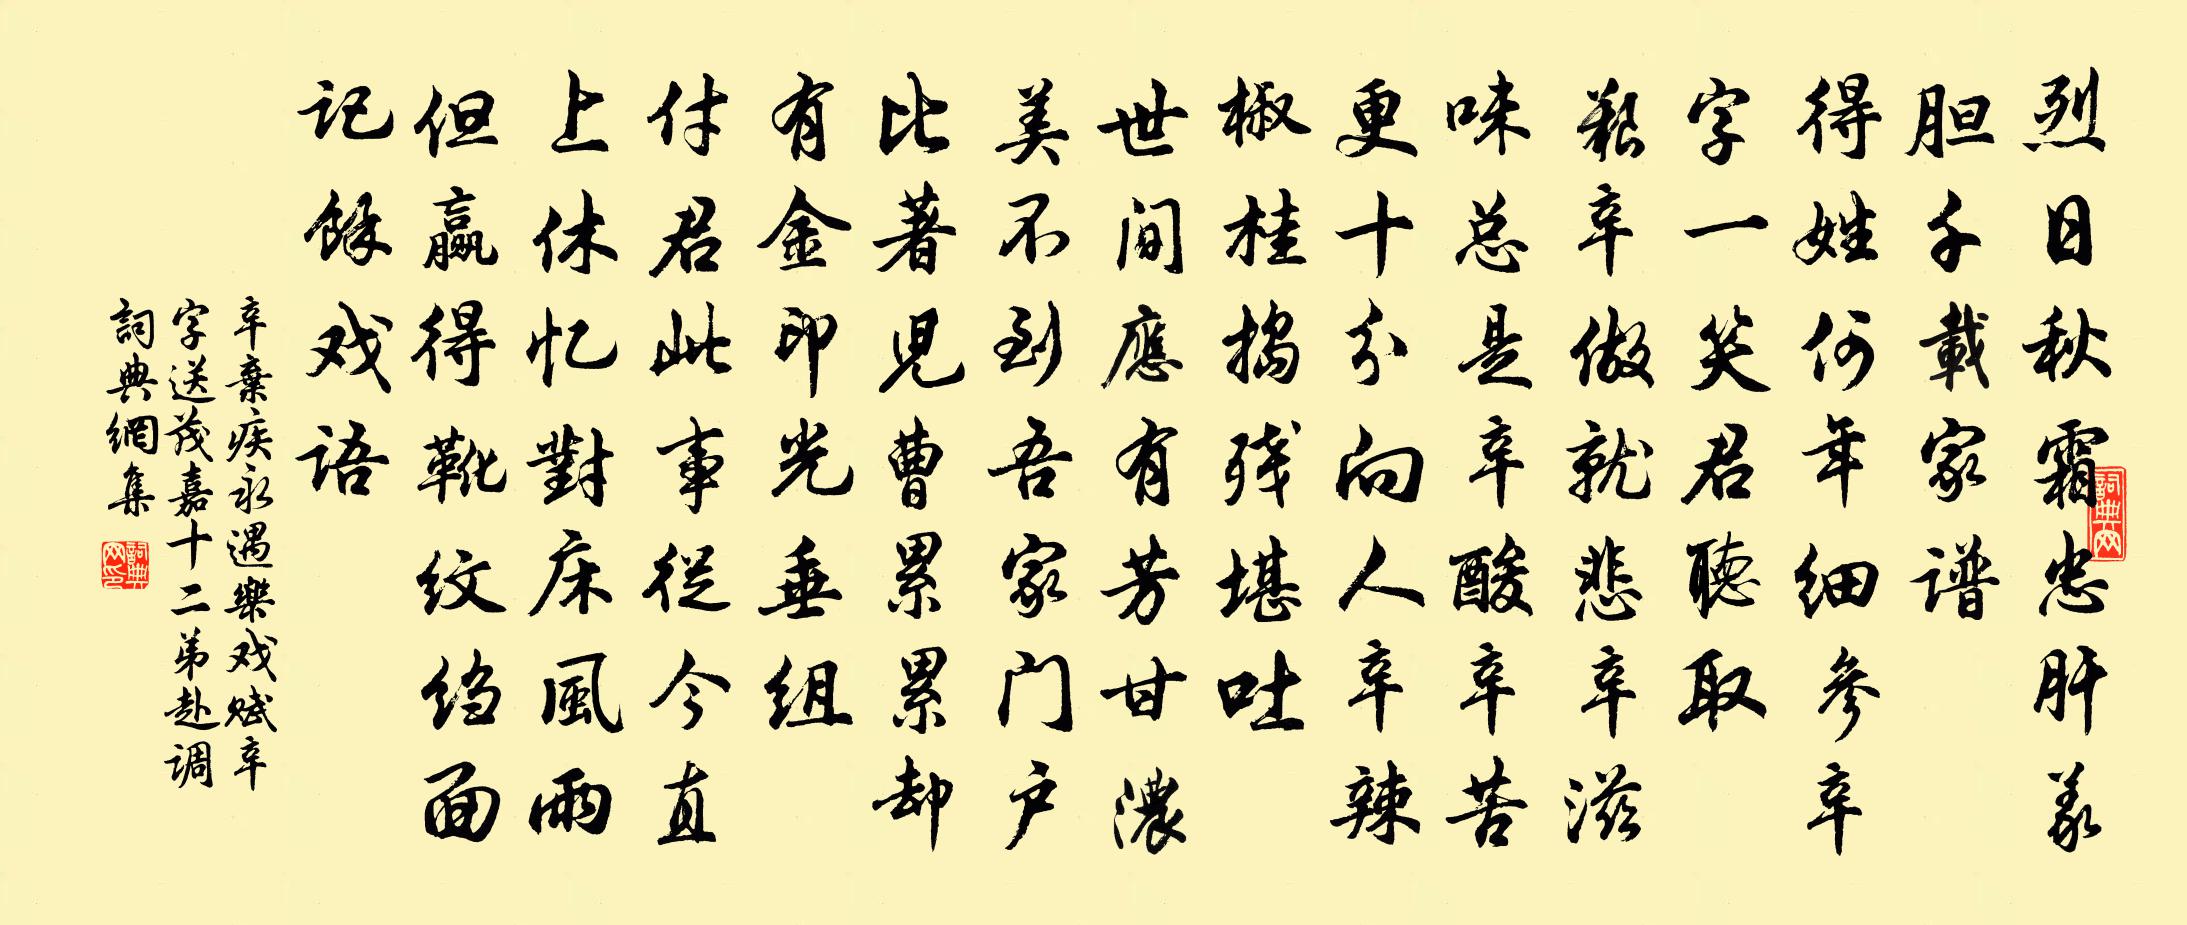 烈日秋霜忠肝義
胆千載家谱
得姓何年细參辛
字一笑君聽取
艱辛做就悲辛滋
味总是辛酸辛苦
更十分向人辛辣
椒桂搗残堪吐
世间應有芳甘濃
美不到吾家门户
比著児曹累累却
有金印光垂组
付君此事從今直
上休忆對床風雨
但赢得靴纹绉面
记餘戏语
辛棄疾永遇樂戏赋辛
字送茂嘉十二弟赴调
詞典網集
詞典网
詞典网印